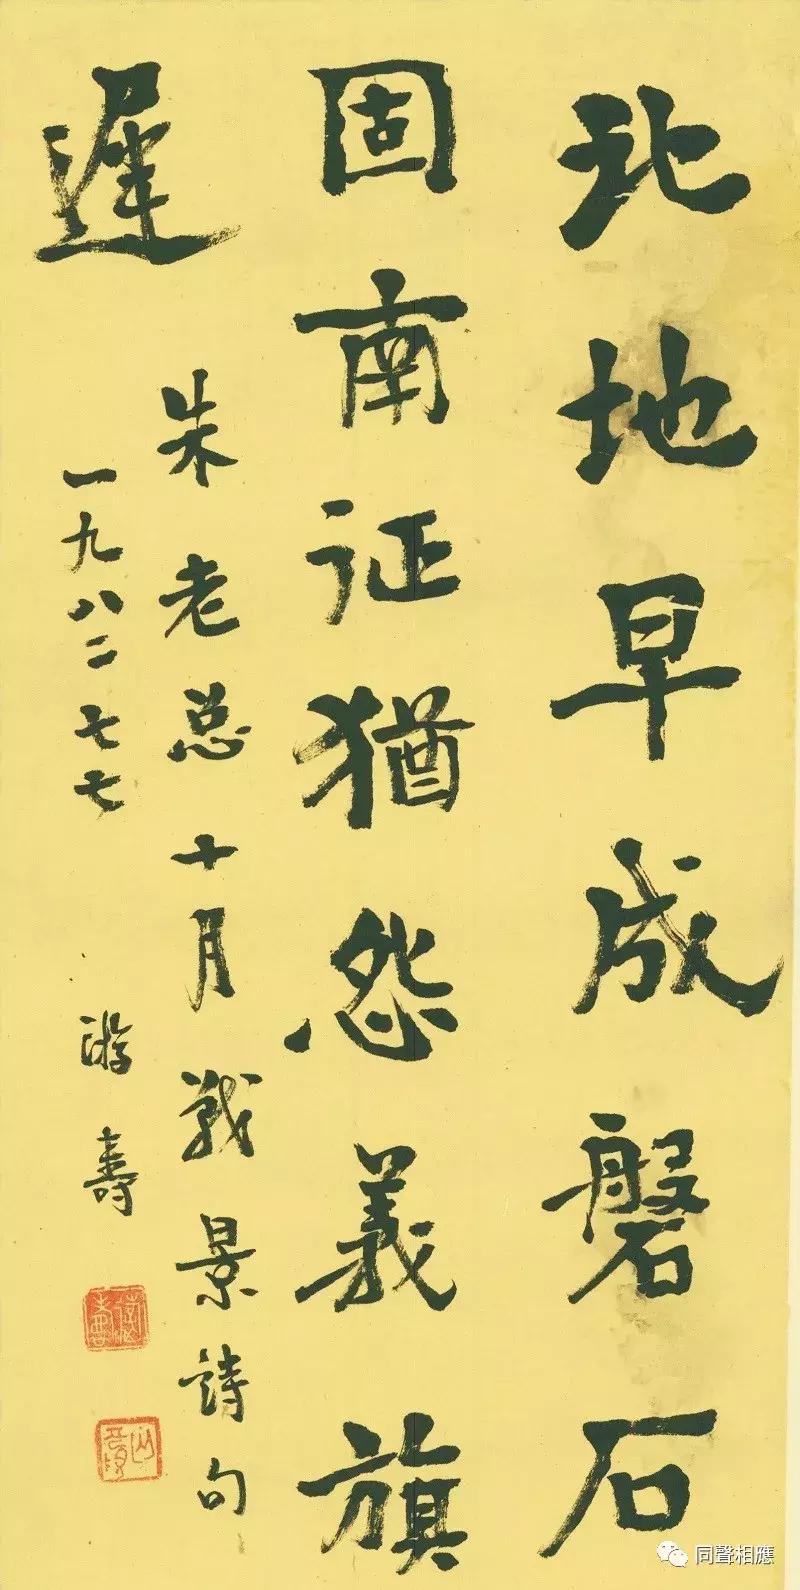 北地早成磐石
固南征猶怨義旗
遲
朱老总十月戰景詩句
一九八二七七
游寿
同聲相應